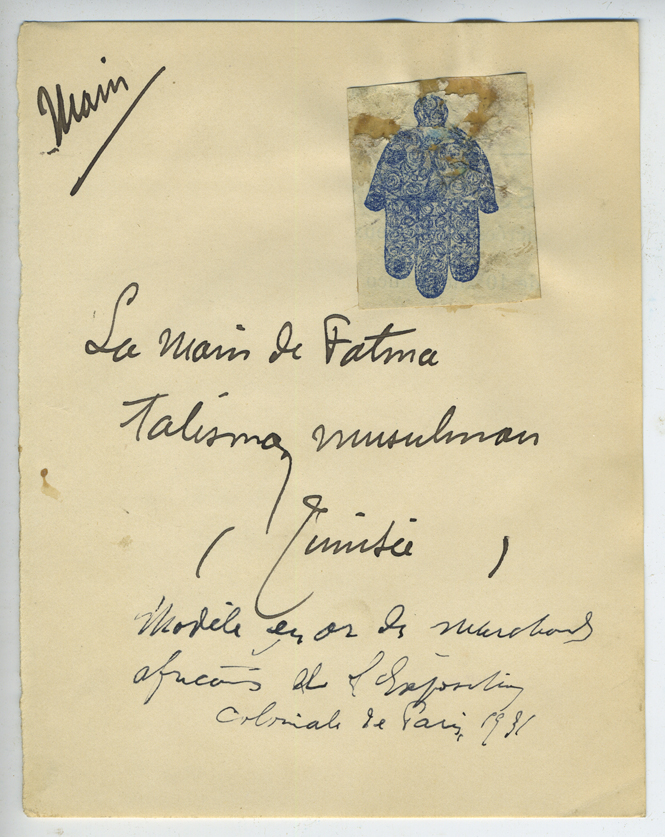 Main
La main de Fatma
talisman musulman
( Tunisie )
Modèle en or de marchands
africains de l'Exposition
coloniale de Paris, 1931